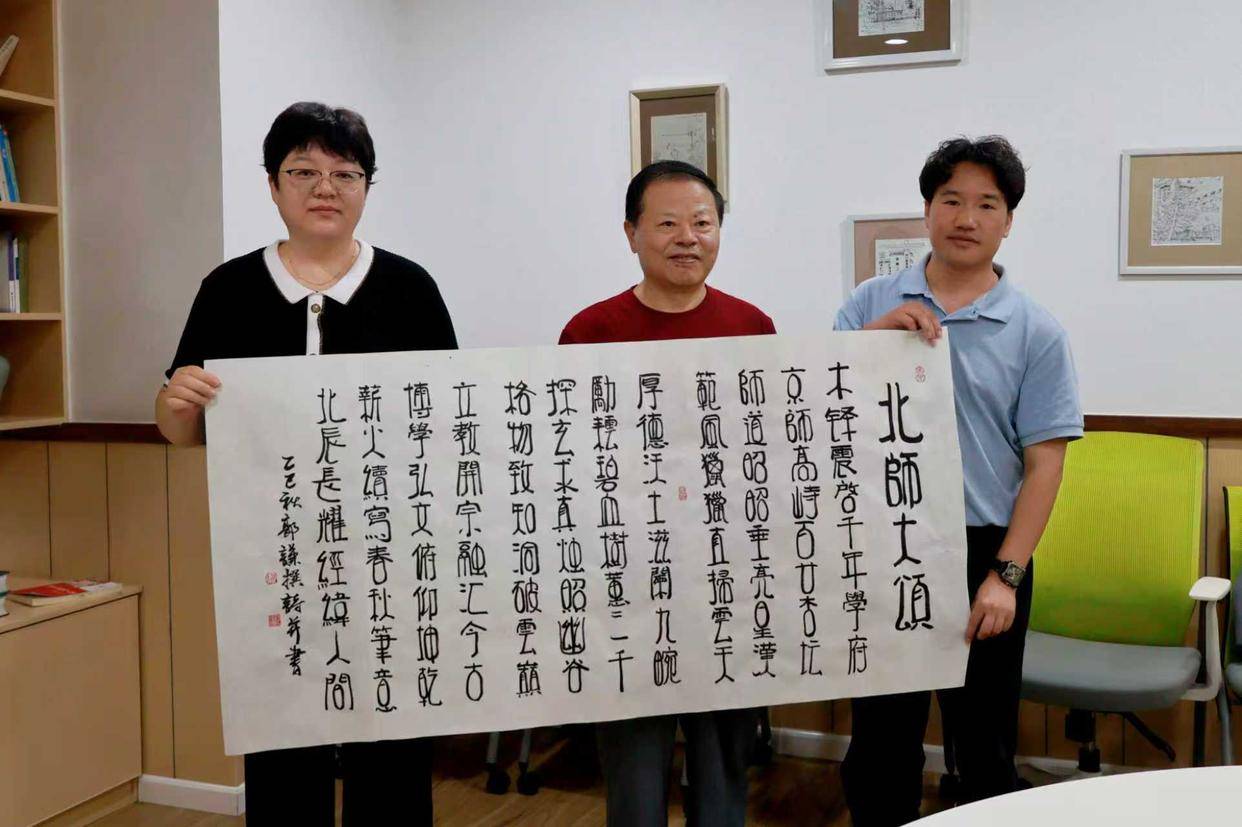 北師大頌
木鐸震啓千年學府
京師高峙百廿杏坛
師道昭昭垂亮星漢
範風獵獵直掃雲天
厚德沃土滋蘭九畹
勵耘碧血樹蕙三千
探玄求真炬昭幽谷
格物致知洞破雲巔
立教開宗融汇今古
博學弘文俯仰坤乾
薪火續寫春秋筆意
北辰長耀經緯人間
乙巳秋郭謙撰詩并書